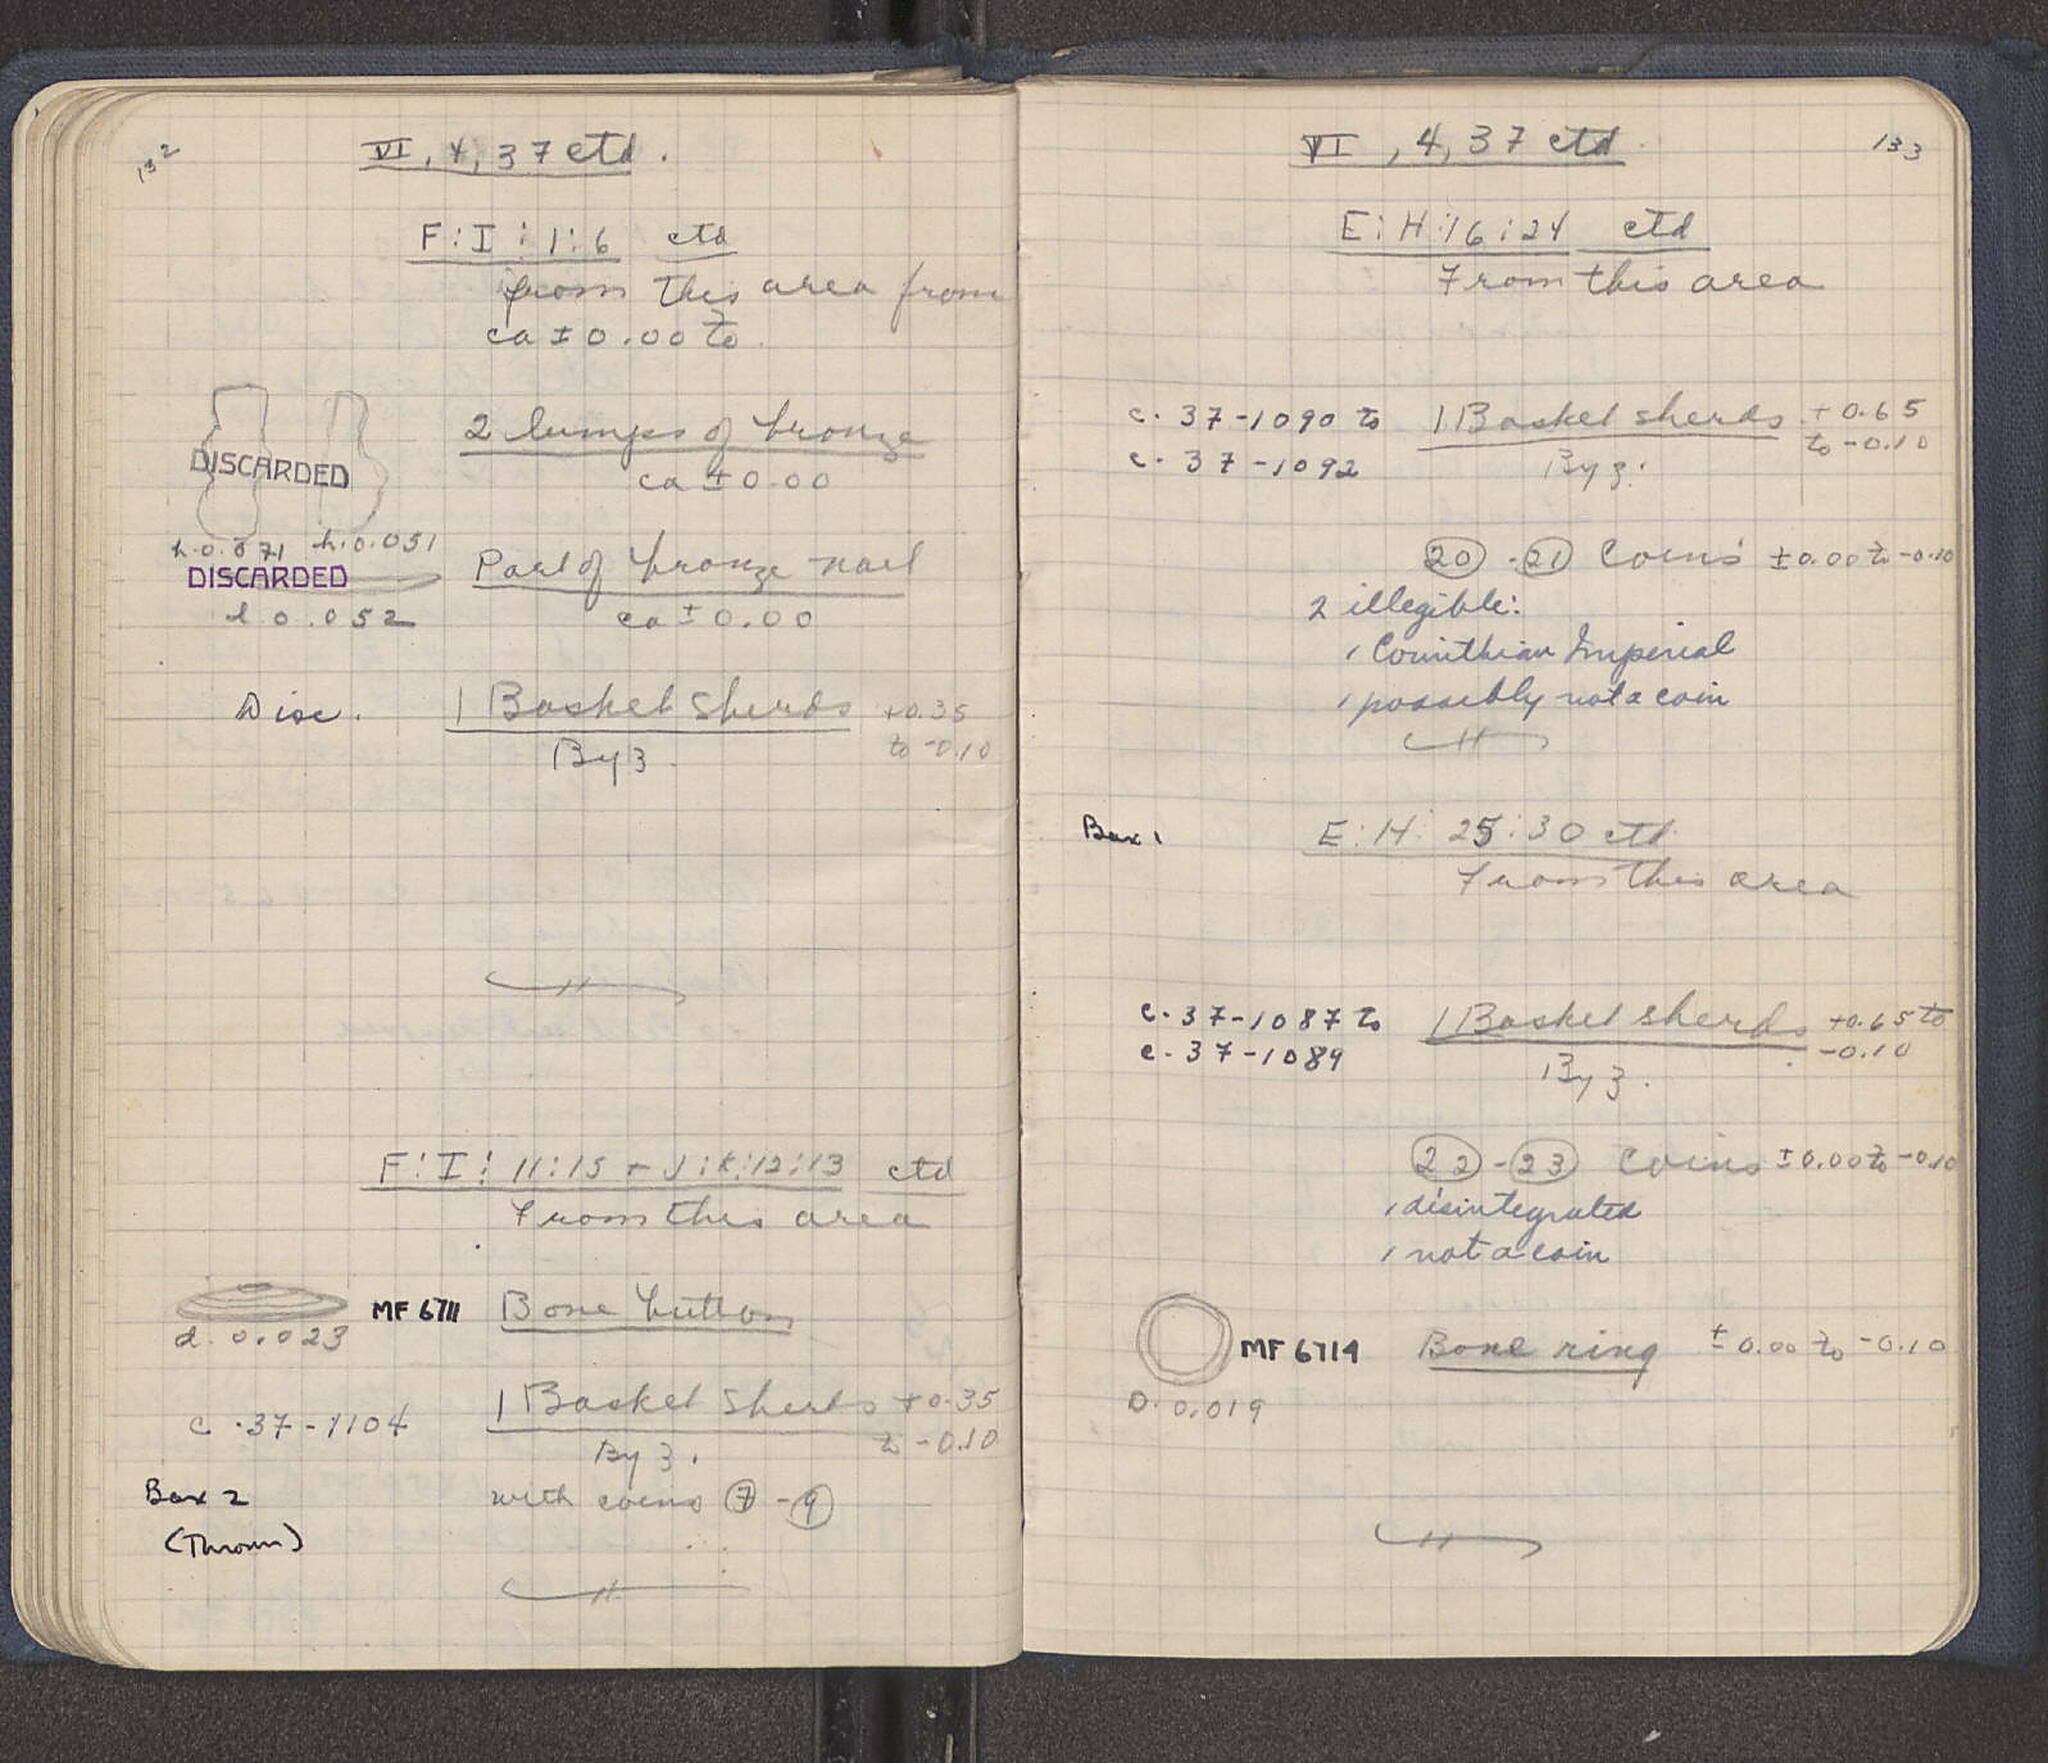 132
VI, 4, 37 ctd.
F:I:1:6 ctd
from this area from
ca ±0.00 to
DISCARDED
2 lumps of bronze
ca ±0.00
h.0.071 h.0.051
DISCARDED
Part of bronze nail
l 0.052
ca ±0.00
Disc. 1 Basket sherds +0.35
to -0.10
By 3.
F:I:11:15 + J:K:12:13 ctd
From this area
MF 6711 Bone button
d. 0.023
C.37-1104 1 Basket sherds +0.35
to -0.10
By 3.
Box 2 with coins 7-9
(Thrown)
VI, 4, 37 ctd. 133
E:H:16:24 ctd
From this area
c. 37-1090 to 1 Basket sherds +0.65
to -0.10
c. 37-1092 By 3.
20-21 Coins ±0.00 to -0.10
2 illegible:
1 Corinthian Imperial
1 possibly not a coin
Box 1 E:H:25:30 ctd
From this area
c. 37-1087 to 1 Basket sherds +0.65 to
-0.10
c. 37-1089 By 3.
22-23 Coins ±0.00 to -0.10
1 disintegrated
1 not a coin
MF 6714 Bone ring ±0.00 to -0.10
D. 0.019